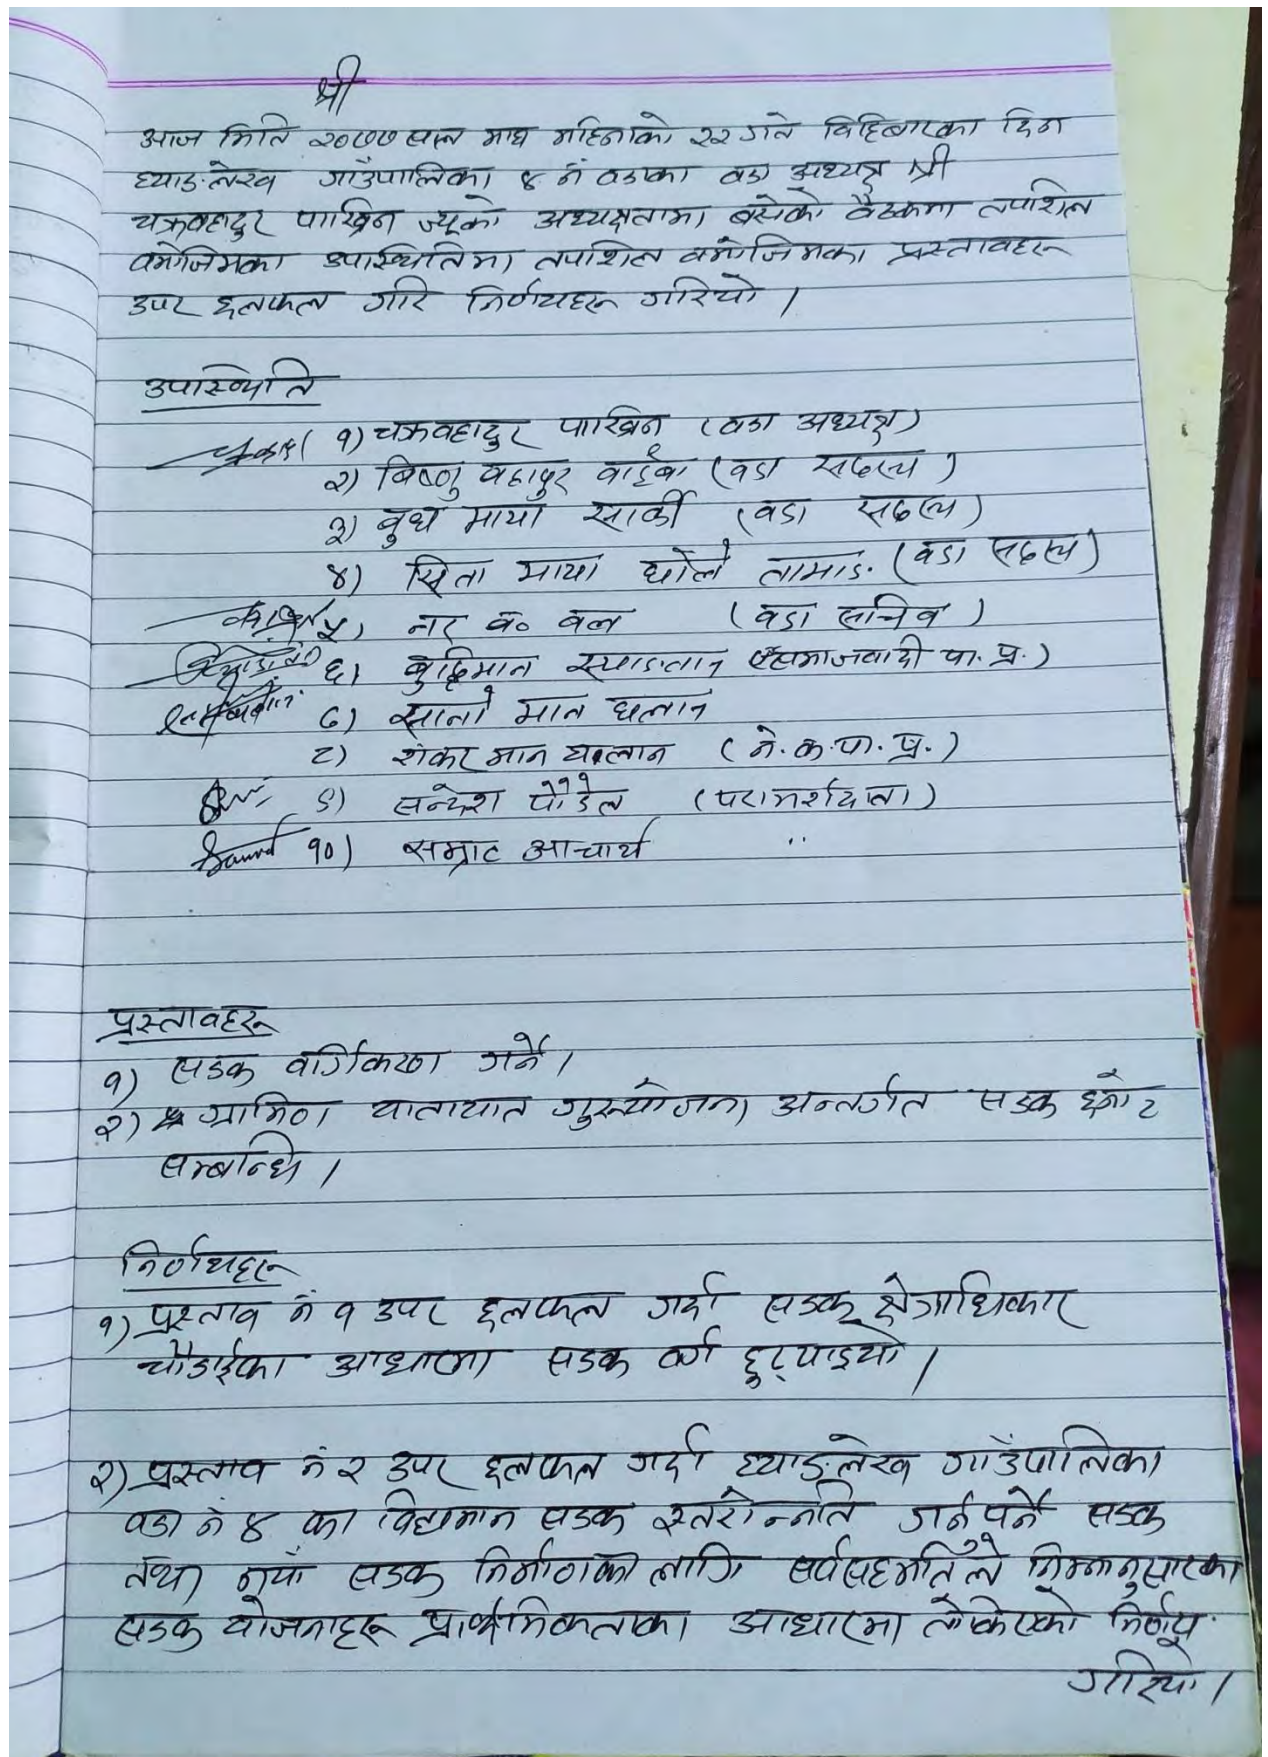 श्री
आज मिति २०७७ साल माघ महिनाको २२ गते विहिबारका दिन
घ्याङलेख गाउँपालिका ४ नं वडाका वडा अध्यक्ष श्री
चक्रबहादुर पाख्रिन ज्यूको अध्यक्षतामा बसेको बैठकमा तपशिल
बमोजिमका उपस्थितिमा तपशिल बमोजिमका प्रस्तावहरू
उपर छलफल गरि निर्णयहरू गरियो ।
उपस्थिति
१) चक्रबहादुर पाख्रिन (वडा अध्यक्ष)
२) बिष्णु बहादुर वाईबा (वडा सदस्य)
३) बुध माया सार्की (वडा सदस्य)
४) सिता माया घोले तामाङ (वडा सदस्य)
५) नर ब० बल (वडा सचिव)
६) बुद्धिमान स्याङतान समाजवादी पा. प्र.)
७) सानो मान घलान
८) शंकर मान घलान (ने. क. पा. प्र.)
९) सन्देश पौडेल (परामर्शदाता)
१०) सम्राट आचार्य ,,
प्रस्तावहरू
१) सडक वर्गिकरण गर्ने ।
२) ग्रामिण यातायात गुरुयोजना अन्तर्गत सडक छनोट
सम्बन्धि ।
निर्णयहरू
१) प्रस्ताव नं १ उपर छलफल गर्दा सडक क्षेत्राधिकार
चौडाईका आधारमा सडक वर्ग छुट्याइयो ।
२) प्रस्ताव नं २ उपर छलफल गर्दा घ्याङलेख गाउँपालिका
वडा नं ४ का विद्यमान सडक स्तरोन्नति गर्नुपर्ने सडक
तथा नयाँ सडक निर्माणको लागि सर्वसहमतिले निम्नानुसारका
सडक योजनाहरू प्राथमिकताका आधारमा तोकिएको निर्णय
गरियो ।